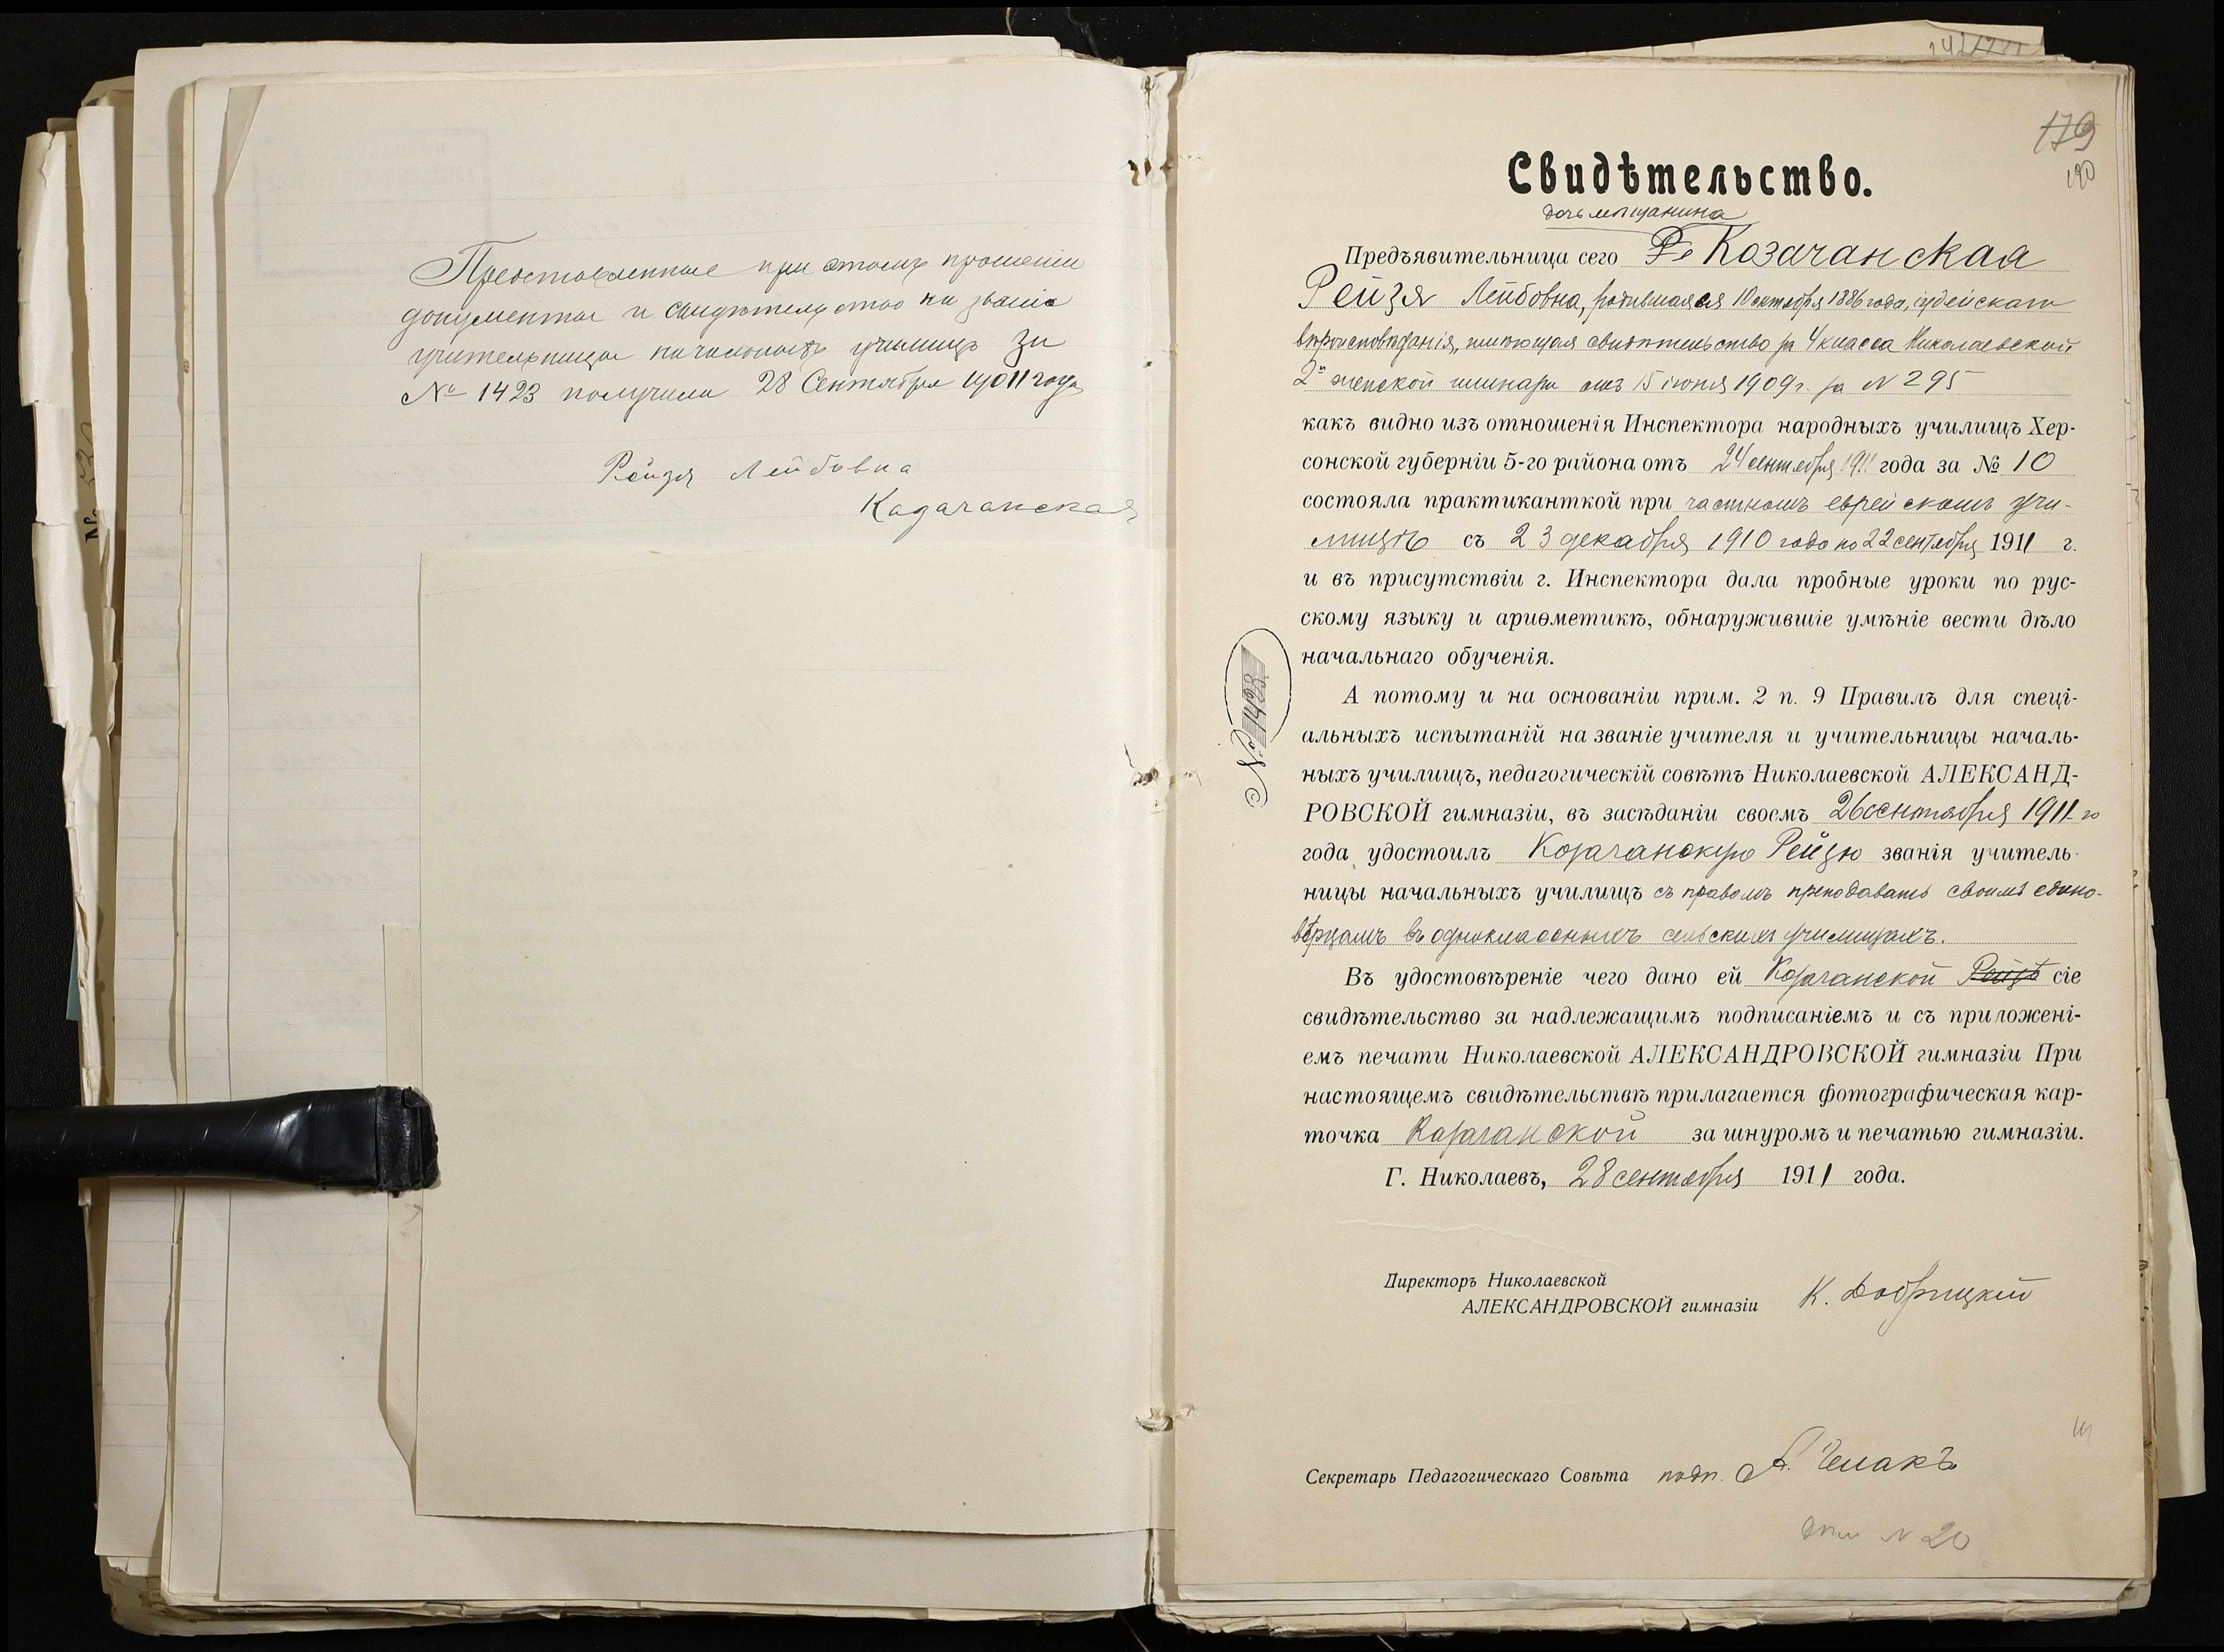 Предоставленные при этомъ прошеніи
документы и свидѣтельство на званіе
учительницы начальныхъ училищъ за
№ 1423 получила 28 Сентября 1911 года
Рейзя Лейбовна
Казачанская
179
190
Свидѣтельство.
дочь мѣщанина
Предъявительница сего Козачанская
Рейзя Лейбовна, родившаяся 10 октября 1886 года, іудейскаго
вѣроисповѣданія, имѣющая свидѣтельство за 4 класса Николаевской
2й женской гимназіи отъ 15 іюня 1909 г. за N 295
какъ видно изъ отношенія Инспектора народныхъ училищъ Хер-
сонской губерніи 5-го района отъ 24 сентября 1911 года за № 10
состояла практиканткой при частномъ еврейскомъ учи-
лищѣ съ 23 декабря 1910 года по 22 сентября 1911 г.
и въ присутствіи г. Инспектора дала пробные уроки по рус-
скому языку и ариѳметикѣ, обнаружившіе умѣніе вести дѣло
начальнаго обученія.
№ 1423
А потому и на основаніи прим. 2 п. 9 Правилъ для спеці-
альныхъ испытаній на званіе учителя и учительницы началь-
ныхъ училищъ, педагогическій совѣтъ Николаевской АЛЕКСАНД-
РОВСКОЙ гимназіи, въ засѣданіи своемъ 26 сентября 1911 го
года удостоилъ Козачанскую Рейзю званія учитель-
ницы начальныхъ училищъ съ правомъ преподавать своимъ едино-
вѣрцамъ въ одноклассныхъ сельскихъ училищахъ.
Въ удостовѣреніе чего дано ей Козачанской Рейзѣ сіе
свидѣтельство за надлежащимъ подписаніемъ и съ приложені-
емъ печати Николаевской АЛЕКСАНДРОВСКОЙ гимназіи При
настоящемъ свидѣтельствѣ прилагается фотографическая кар-
точка Козачанской за шнуромъ и печатью гимназіи.
Г. Николаевъ, 28 сентября 1911 года.
Директоръ Николаевской
АЛЕКСАНДРОВСКОЙ гимназіи К. Добрицкій
Секретарь Педагогическаго Совѣта подп. А. Чемакъ
N 20